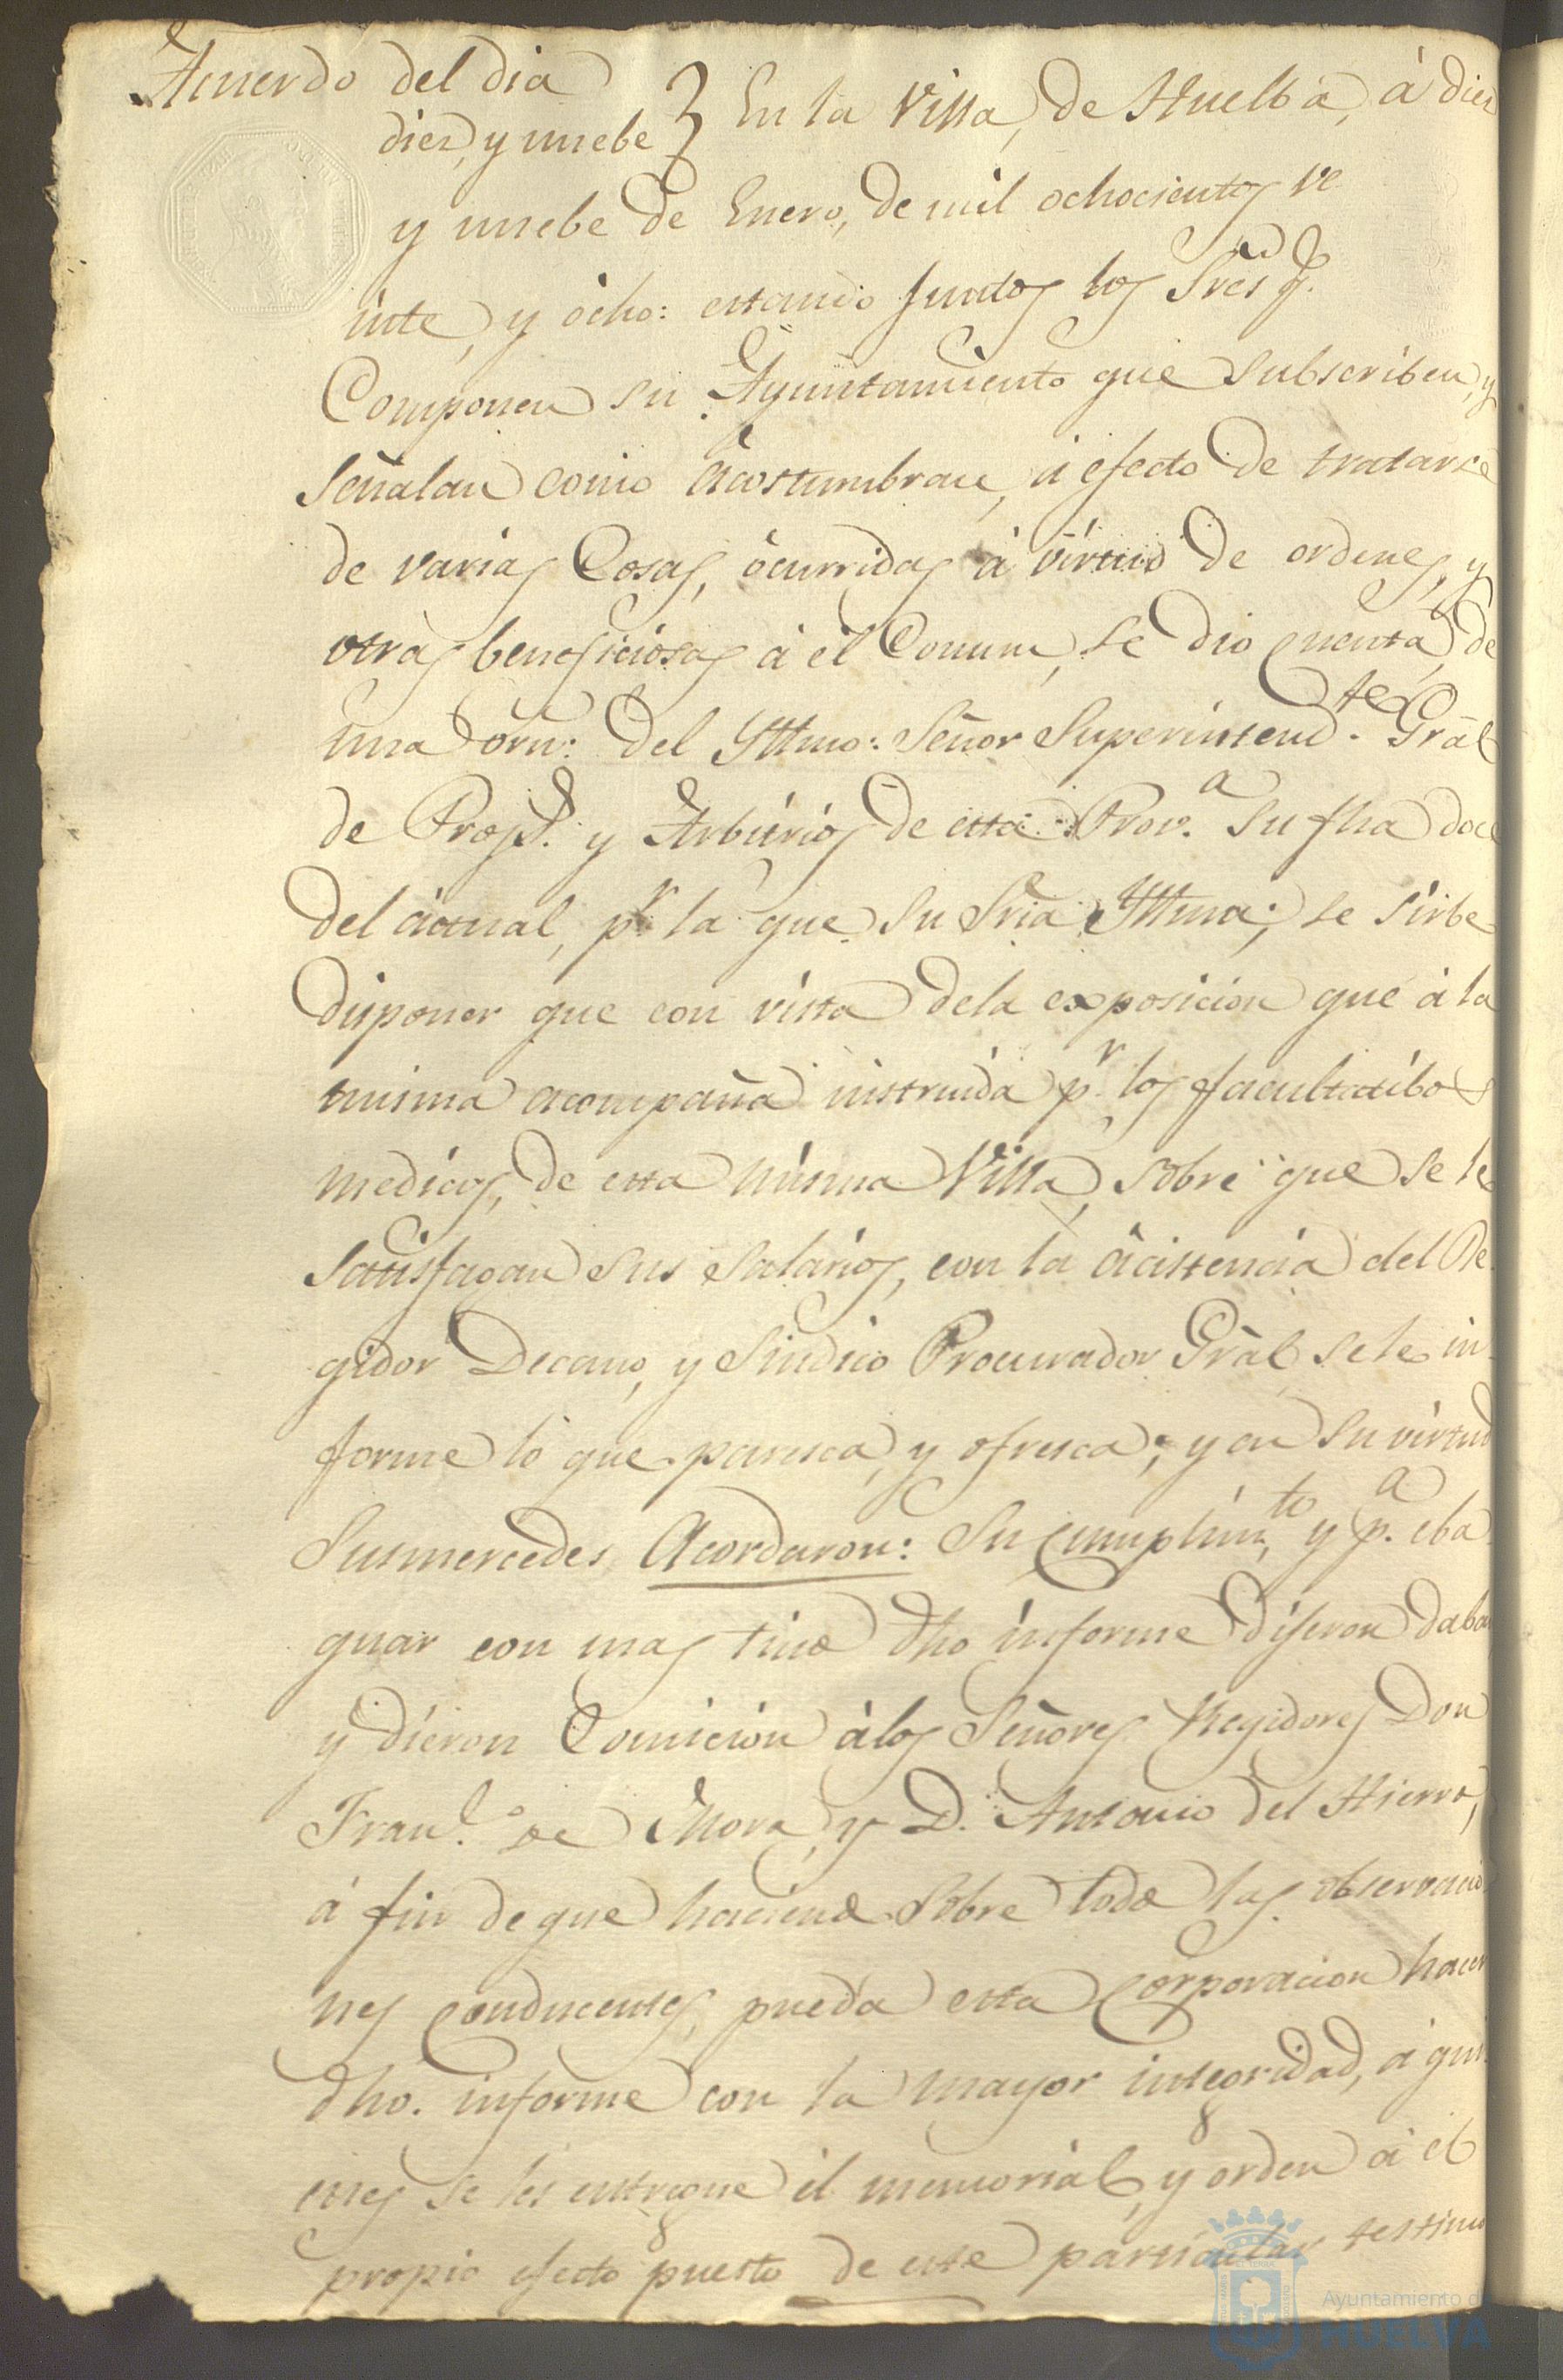 Acuerdo del dia
diez, y nuebe } En la Villa, de Huelba, á diez
y nuebe de Enero, de mil ochocientos ve
inte, y ócho: estando Juntos los Sres q.
Componen su Ayuntamiento que subscriben, y
señalan como acostumbran, á efecto de tratarse
de varias Cosas, ócurridas á virtud de ordenes, y
otras beneficiosas á él Comun, se dio cuenta, de
una orn: del Yttmo: Señor Superintend.te Grãl
de Prop.s y Arbitrios de esta Prov.a su fha doce
del áctual, p.r la que su Sria Yttma; se sirbe
disponer que con vista dela exposicion que á la
misma acompaña instruida p.r los facultatibos
medicos, de esta misma Villa, sobre que se le
satisfagan sus salarios, con la ácistencia del Re
gidor Decano, y Sindico Procurador Grãl se le in
forme ló que paresca, y ofresca; y en su virtud
Susmercedes Acordaron: Su cumplim.to, y p.a eba
guar con mas tino dho informe dijeron daban
y dieron Comición álos Señores Regidores Don
Fran.co de Mora, y D. Antonio del Hierro,
á fin de que haciendo sobre todo las observacio
nes conducentes, pueda esta Corporacion hacer
dho. informe con la mayor integridad, á qui
enes se les entregue él memorial, y orden á el
propio efecto puesto de este particular testimo
Ayuntamiento d
HUELVA